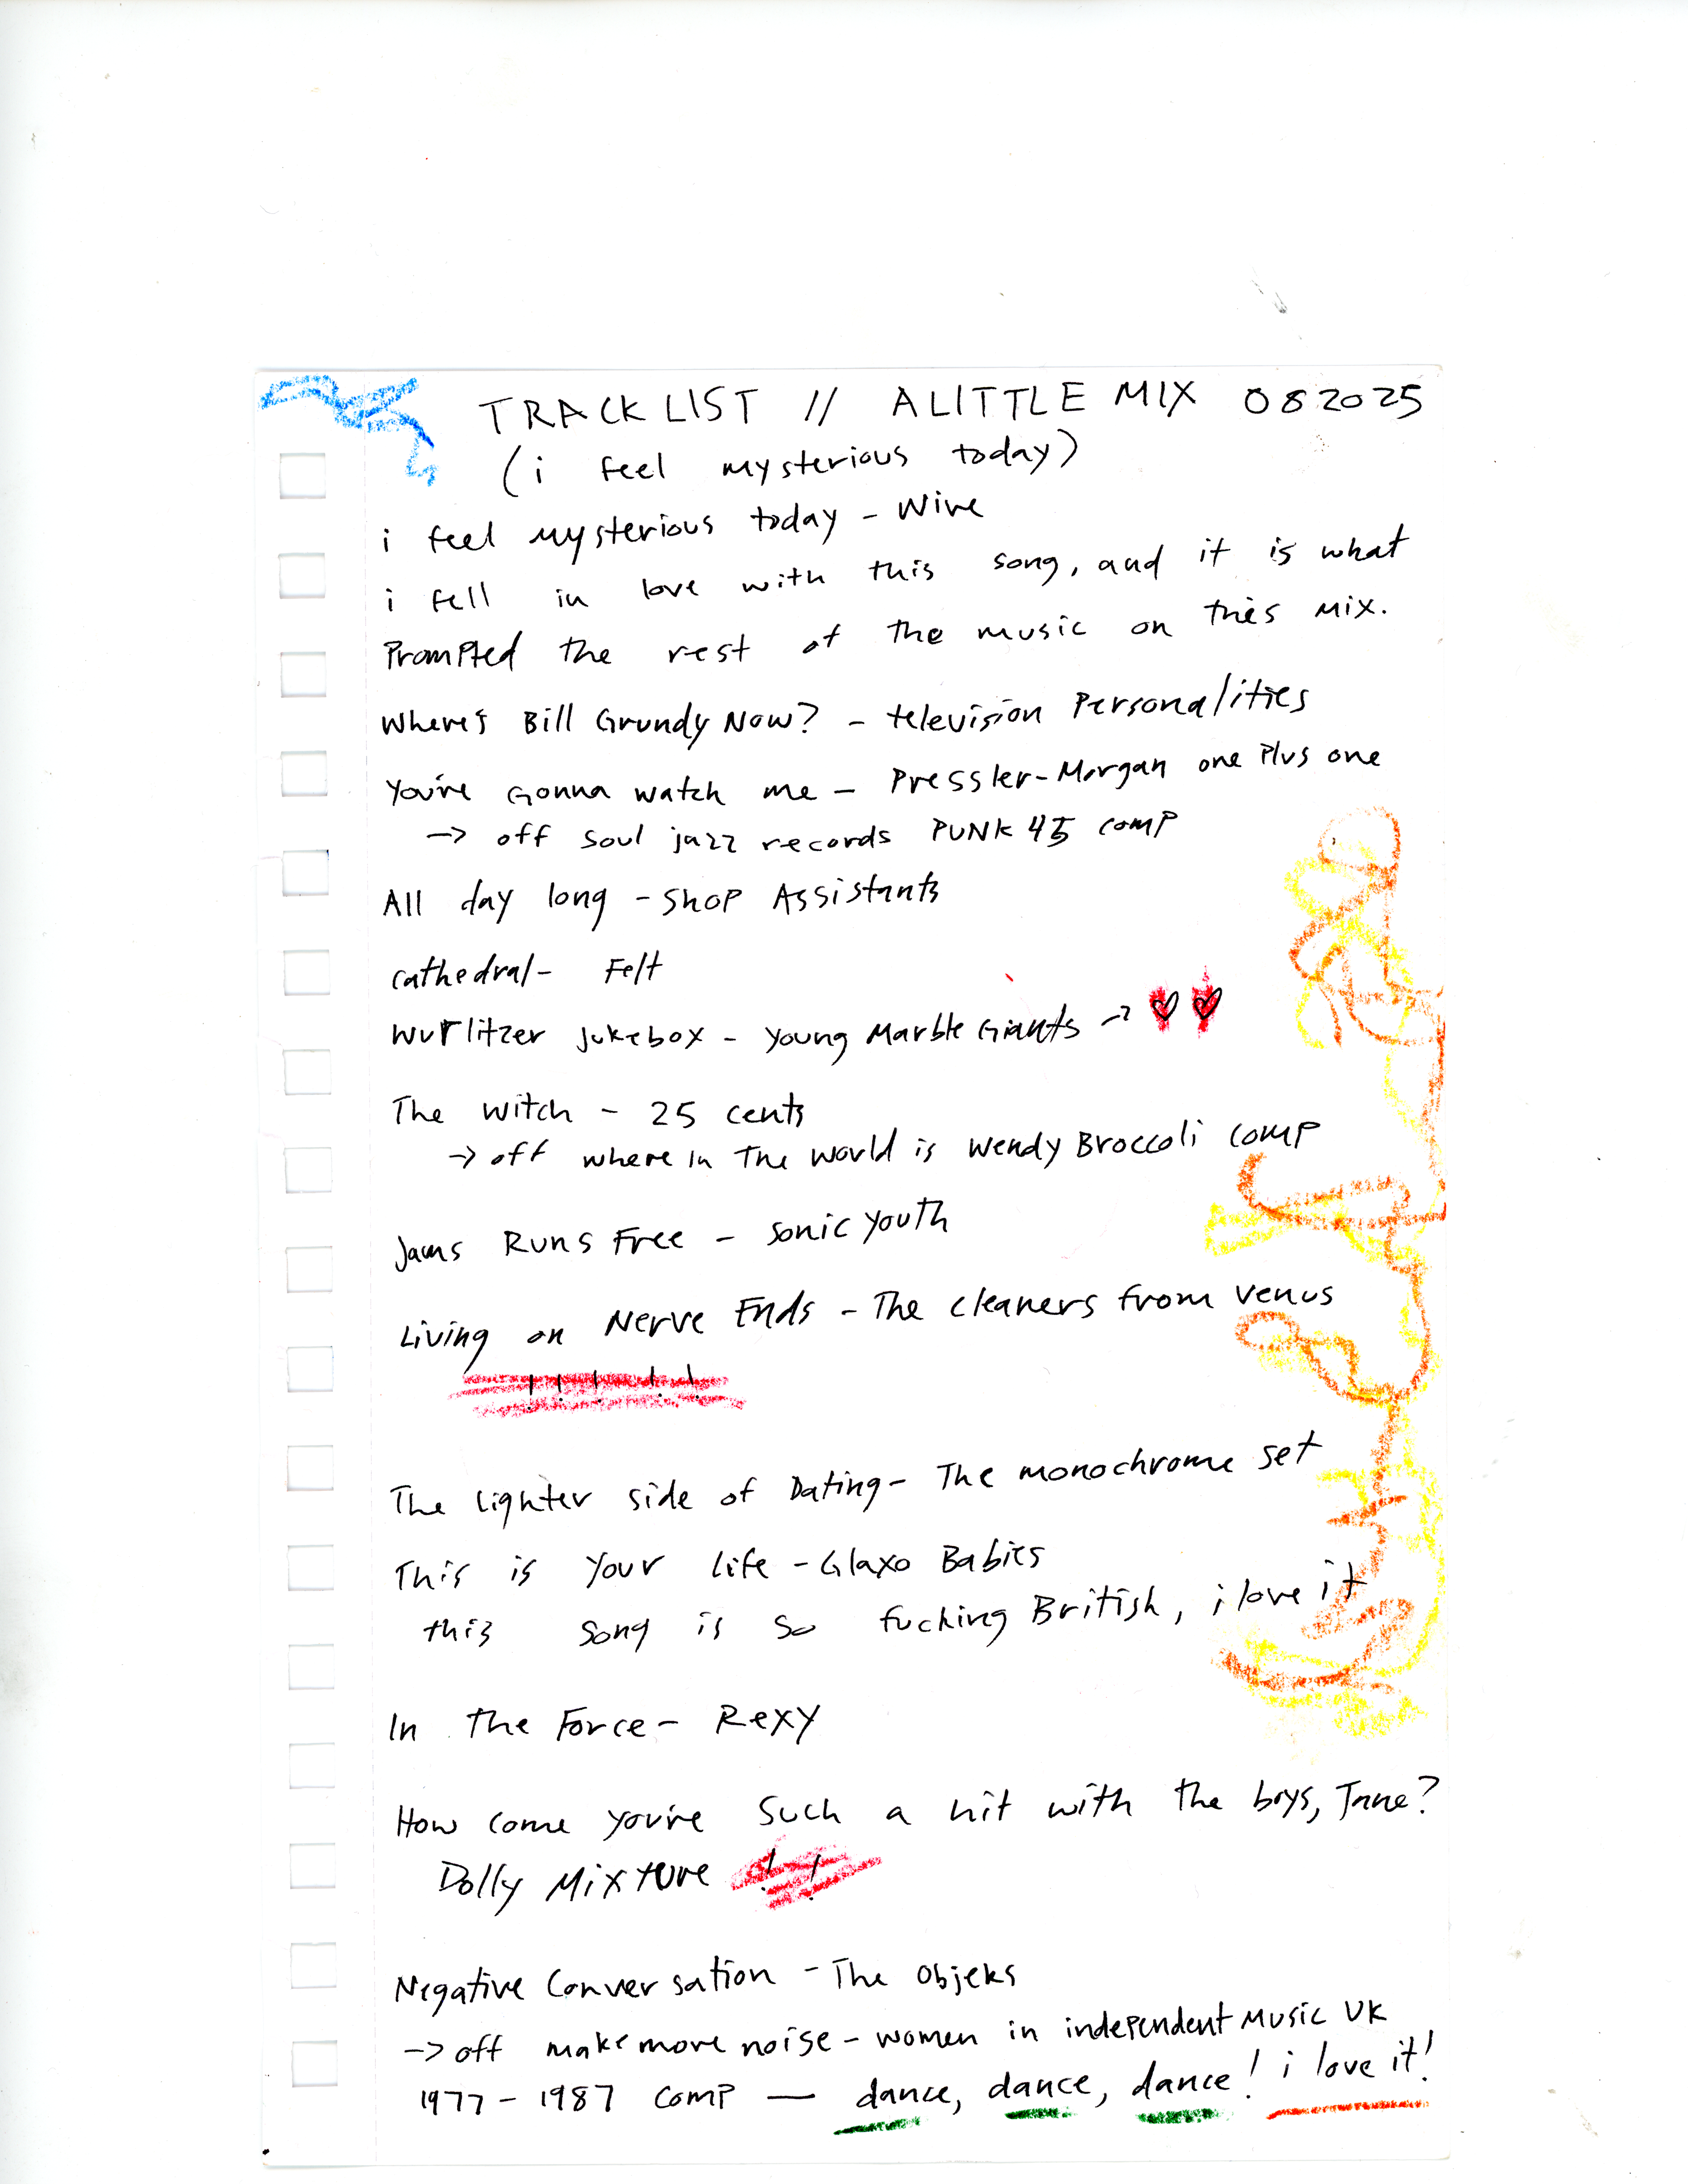 TRACKLIST // A LITTLE MIX 082025
(i feel mysterious today)
i feel mysterious today - Wire
i fell in love with this song, and it is what
Prompted the rest of the music on this mix.
Where's Bill Grundy Now? - television Personalities
You're Gonna watch me - Pressler-Morgan one Plus one
-> off soul jazz records PUNK 45 comp
All day long - Shop Assistants
cathedral - Felt
Wurlitzer jukebox - young Marble Giants -> ♡ ♡
The witch - 25 cents
-> off where in The World is Wendy Broccoli comp
Jams Runs Free - sonic youth
Living on Nerve Ends - The cleaners from venus
! ! ! ! !
The lighter side of Dating - The monochrome set
This is your life - Glaxo Babies
this song is so fucking British, i love it
In the Force - Rexy
How come you're such a hit with the boys, Jane?
Dolly Mixture ! !
Negative Conversation - The Objeks
-> off make more noise - women in independent Music UK
1977 - 1987 comp — dance, dance, dance! i love it!